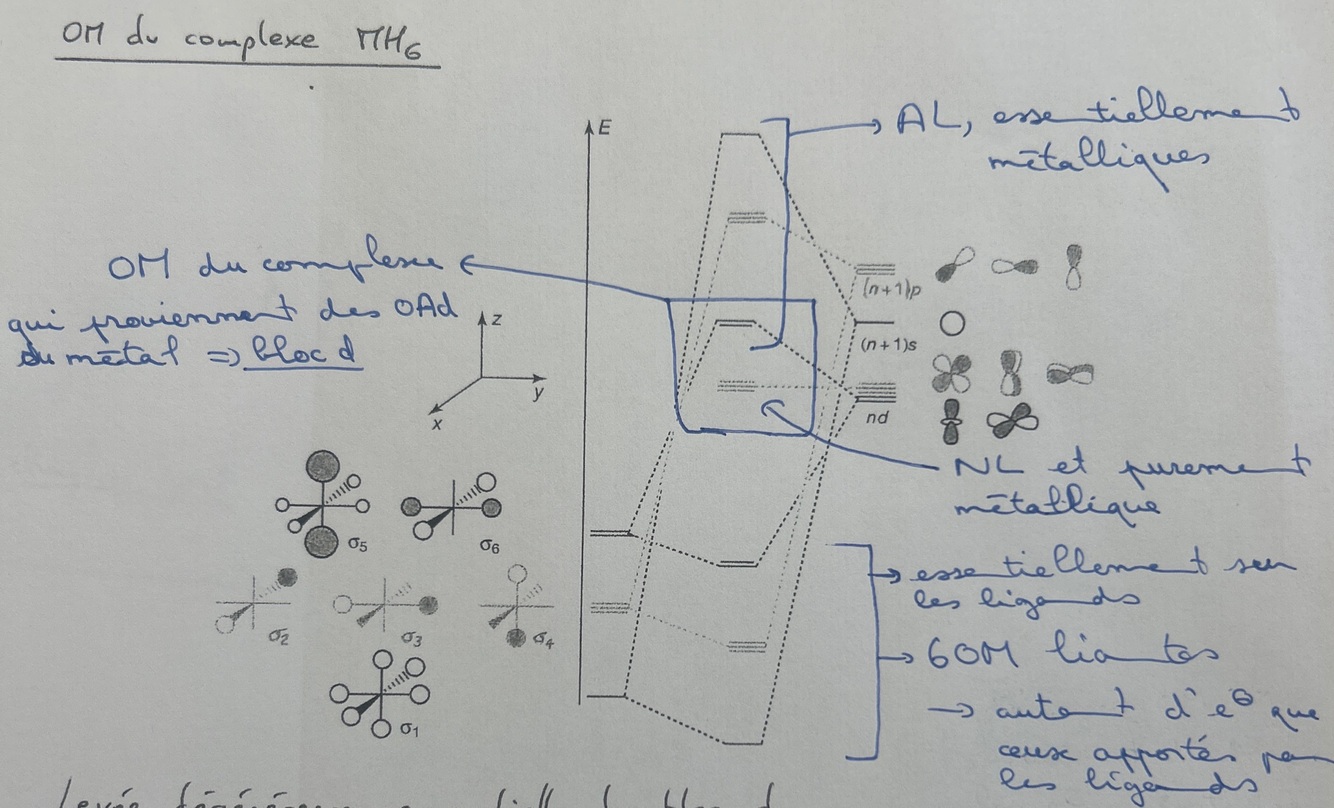 OM du complexe MH6
E
AL, essentiellement
métalliques
OM du complexe
qui proviennent des OAd
du métal => bloc d
z
y
x
(n+1)p
(n+1)s
nd
NL et purement
métallique
σ5
σ6
σ2
σ3
σ4
σ1
essentiellement sur
les ligands
6OM liantes
→ autant d'e⊖ que
ceux apportés par
les ligands